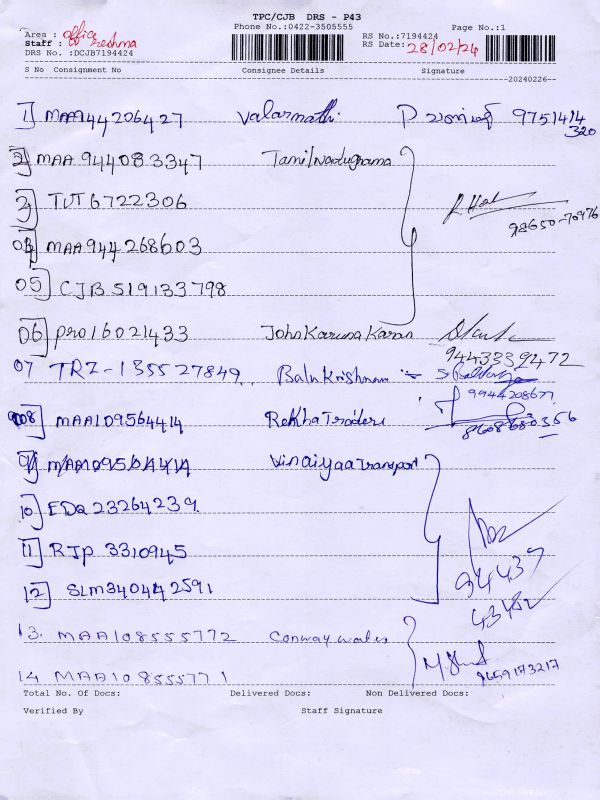 TPC/CJB DRS - P43
Phone No.:0422-3505555 Page No.:1
Area : office RS No.:7194424
Staff : Reshma RS Date: 28/02/24
DRS No. :DCJB7194424
S No Consignment No Consignee Details Signature
20240226
1] MAA944206427 Valarmathi 9751414
320
2] MAA 944083347 Tamilnadugrama
3] TUT6722306
98650-70976
04] MAA944268603
05] CJB 519133798
06] PRO16021433 John Karuna Karan
9443339472
07 TRZ-135527849 Balu Krishnan
9944208671
08] MAA109564414 Rekha Traders
8608680356
09] MAA109564414 Vinaiyaa Transport
10] EDQ 23264239
11] RJP 3310945
94437
12] SLM340442591
43482
13. MAA108555772 Conway water
9659173217
14. MAA108555771
Total No. Of Docs: Delivered Docs: Non Delivered Docs:
Verified By Staff Signature